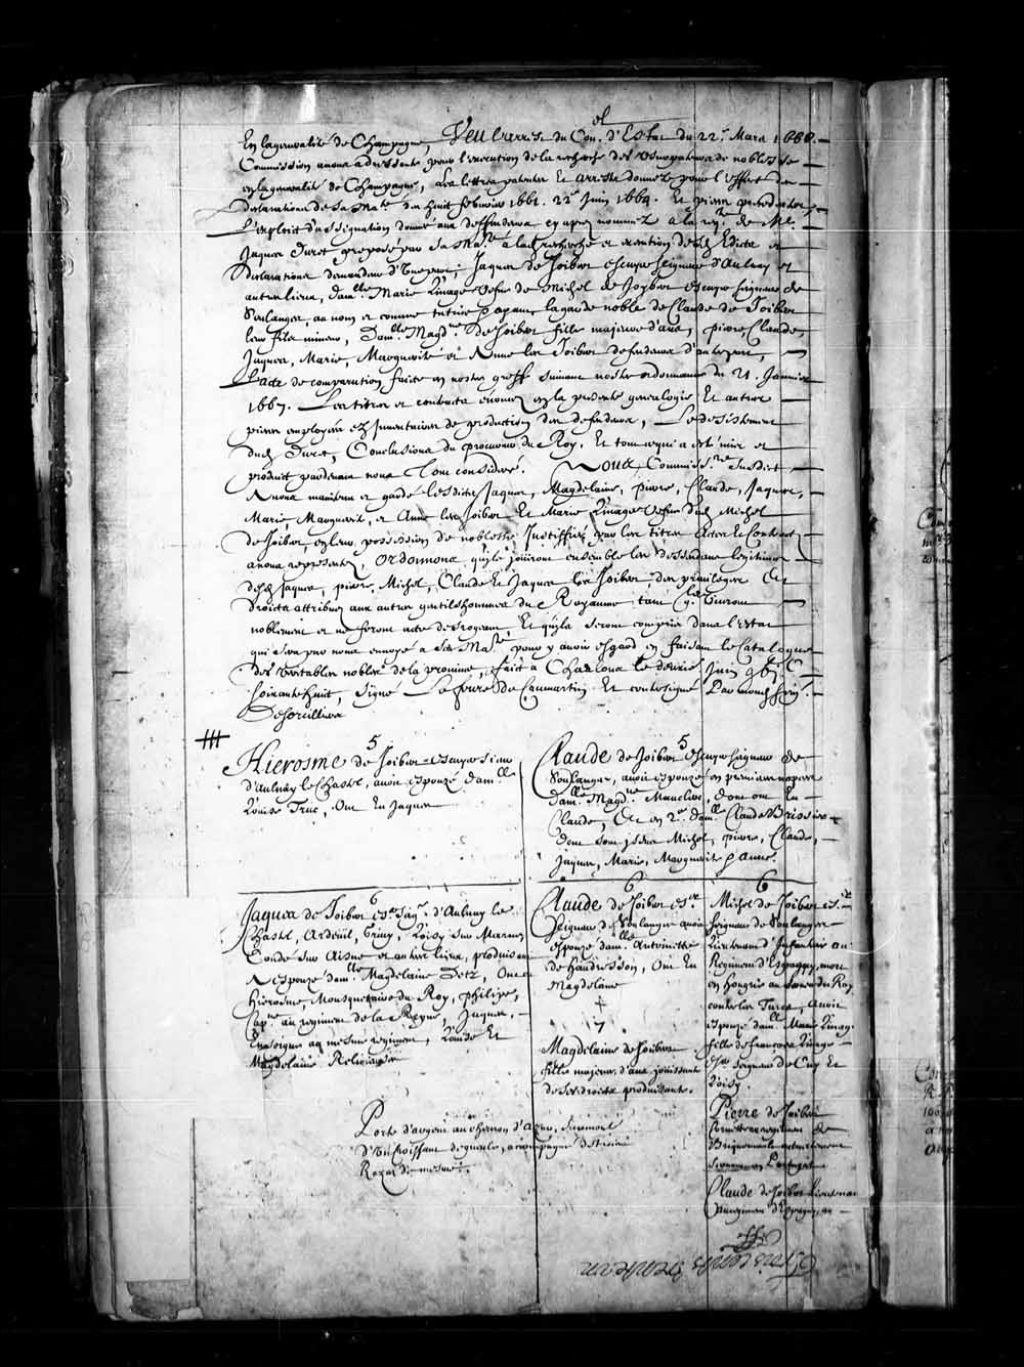 En la generalité de Champagne, Veu l'arrest du Con.el d'Estat du 22.e Mars 1666.
Commission a nous adressante pour l'execution de la recherche des usurpateurs de noblesse
en la generalité de Champagne, des lettres patentes et arrests donnez pour l'effect des
declarations de Sa Ma.té des huit febvrier 1661. 22.e Juin 1664. et
L'exploit d'assignation donné aux deffendeurs cy apres nommez a la req.te de M.e
Jaques Duret preposé par Sa Ma.té a la recherche et execution desd. Edicts et
declarations demandeur d'une part, Jaques de Joibert escuyer seigneur d'Aulnay et
autres lieux, dam.lle Marie Linage vefve de Michel de Joybert escuyer seigneur de
Soulanges, au nom et comme tutrice ayant la garde noble de Claude de Joibert
leur fils mineur, Dam.lle Magd.ne de Joibert fille majeure d'ans, pierre, Claude,
Jaques, Marie, Marguerite et Anne les Joibert deffendeurs d'autre part,
L'acte de comparution faicte en nostre greffe suivant nostre ordonnance du 21. Janvier
1667. Les titres et contracts enoncez en la presente genealogie et autres
pieces employées es Inventaires de production des defendeurs, Le desistement
dud. Duret, Conclusions du procureur du Roy, Et tout ce qui a esté mis et
produit pardevant nous Tout consideré. Nous Commiss.re susdict
Avons maintenu et gardé lesdits Jaques, Magdelaine, pierre, Claude, Jaques,
Marie, Marguerite, et Anne les Joibert Et Marie Linage vefve dud. Michel
de Joibert, en leur possession de noblesse Justiffiée par les titres Actes et Contracts
a nous representez, Ordonnons qu'ils jouiront ensemble les descendans legitimes
desd. Jaques, pierre, Michel, Claude et Jaques les Joibert, des privileges et
droicts attribuez aux autres gentilshommes du Royaume tant q. viveront
noblement et ne feront acte derogeant, Et qu'ils seront compris dans l'estat
qui sera par nous envoyé a Sa Ma.té pour y avoir esgard en faisant le Catalogue
des veritables nobles de la province, faict a Chaalons le dernier Juin
soixante huit, Signé Lefevre de Caumartin Et contresigné Par mond. seig.r
Desorillieres
5
Hierosme de Joibert escuyer sieur
d'Aulnay le Chastel, avoit espouzé dam.lle
Louise Truc, Ont Eu Jaques
5
Claude de Joibert escuyer seigneur de
Soulanges, avoit espouzé en premieres nopces
dam.lle Magd.ne Mauclerc, dont ont Eu
Claude, Et en 2.es dam.lle Claude Brissier
dont sont issus Michel, pierre, Claude,
Jaques, Marie, Marguerite et anne.
6
Jaques de Joibert es.er seig.r d'Aulnay le
Chastel, Ardeuil, Loisy sur Marne,
Condé sur Aisne et autres lieux, produisant
A espouzé dam.lle Magdelaine Ont eu
hierosme, Mousquetaire du Roy, philipe,
Cap.ne au regiment de la Reyne, Jaques,
Enseigne au mesme regiment, Louise Et
Magdelaine Religieuse
6
Claude de Joibert es.er
Seigneur de Soulanges avoit
espouzé dam.lle Antoinette
de handresson, Ont Eu
Magdelaine
7
Magdelaine de Joibert
fille majeure d'ans jouissante
de ses droicts produisante.
6
Michel de Joibert es.er
seigneur de Soulanges
Lieutenant d'Infanterie au
Regiment d'Espagny, mort
en hongrie au service du Roy
contre les Turcs, Avoit
espouzé dam.lle Marie Linage
fille de françois Linage
es.er seigneur de Et
Loisy.
Pierre de Joibert
regiment de
en Portugal
Claude de Joibert Lieutenant
au regiment d'Espagny, au
Porte d'argent au chevron d'azur, surmonté
d'un croissant de gueule, acompagné de trois
Rozes de mesme.